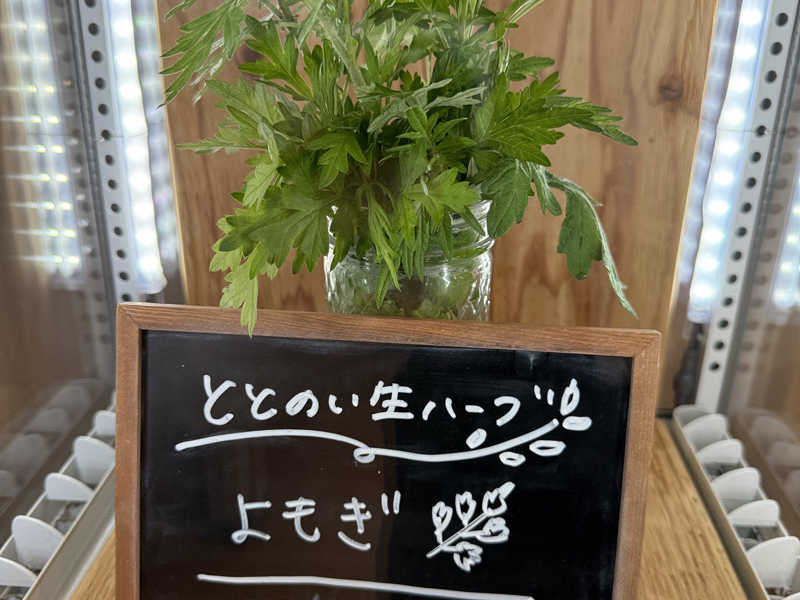 ととのい生ハーブ
よもぎ